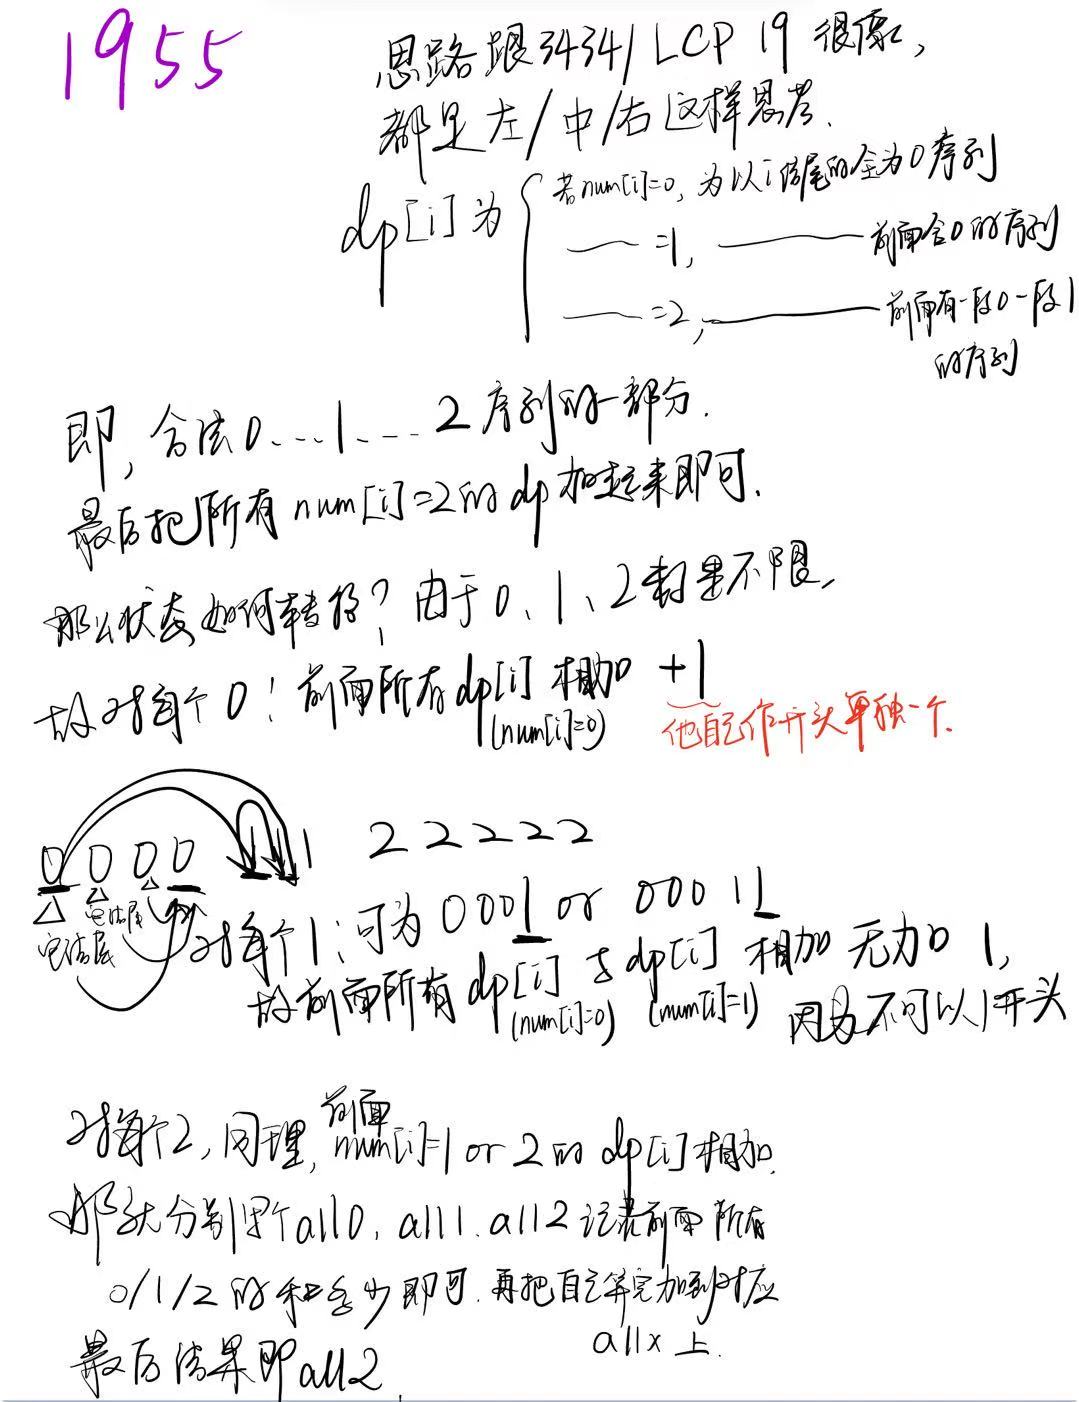 1955
思路跟3434/LCP 19很像,
都是左/中/右这样思考.
dp[i]为
若num[i]=0, 为以i结尾的全为0序列
—— =1, ———— 前面含0的序列
—— =2, ———— 前面有一段0一段1
的序列
即, 合法0...1...2序列的一部分.
最后把所有num[i]=2的dp加起来即可.
那么状态如何转移? 由于0、1、2数量不限,
故对每个0: 前面所有dp[i]相加 +1
(num[i]=0)
他自己作开头单独一个.
0 0 0 0 1 1 1 2 2 2 2 2
它结尾 它结尾
对每个1: 可为0001 or 00011
故前面所有dp[i]与dp[i]相加 无加1,
(num[i]=0) (num[i]=1) 因为不可以1开头
对每个2, 同理, 前面num[i]=1 or 2的dp[i]相加.
那就分别用个all0, all1, all2记录前面所有
0/1/2的和多少即可. 再把自己算完加到对应
allx上.
最后结果即all2.